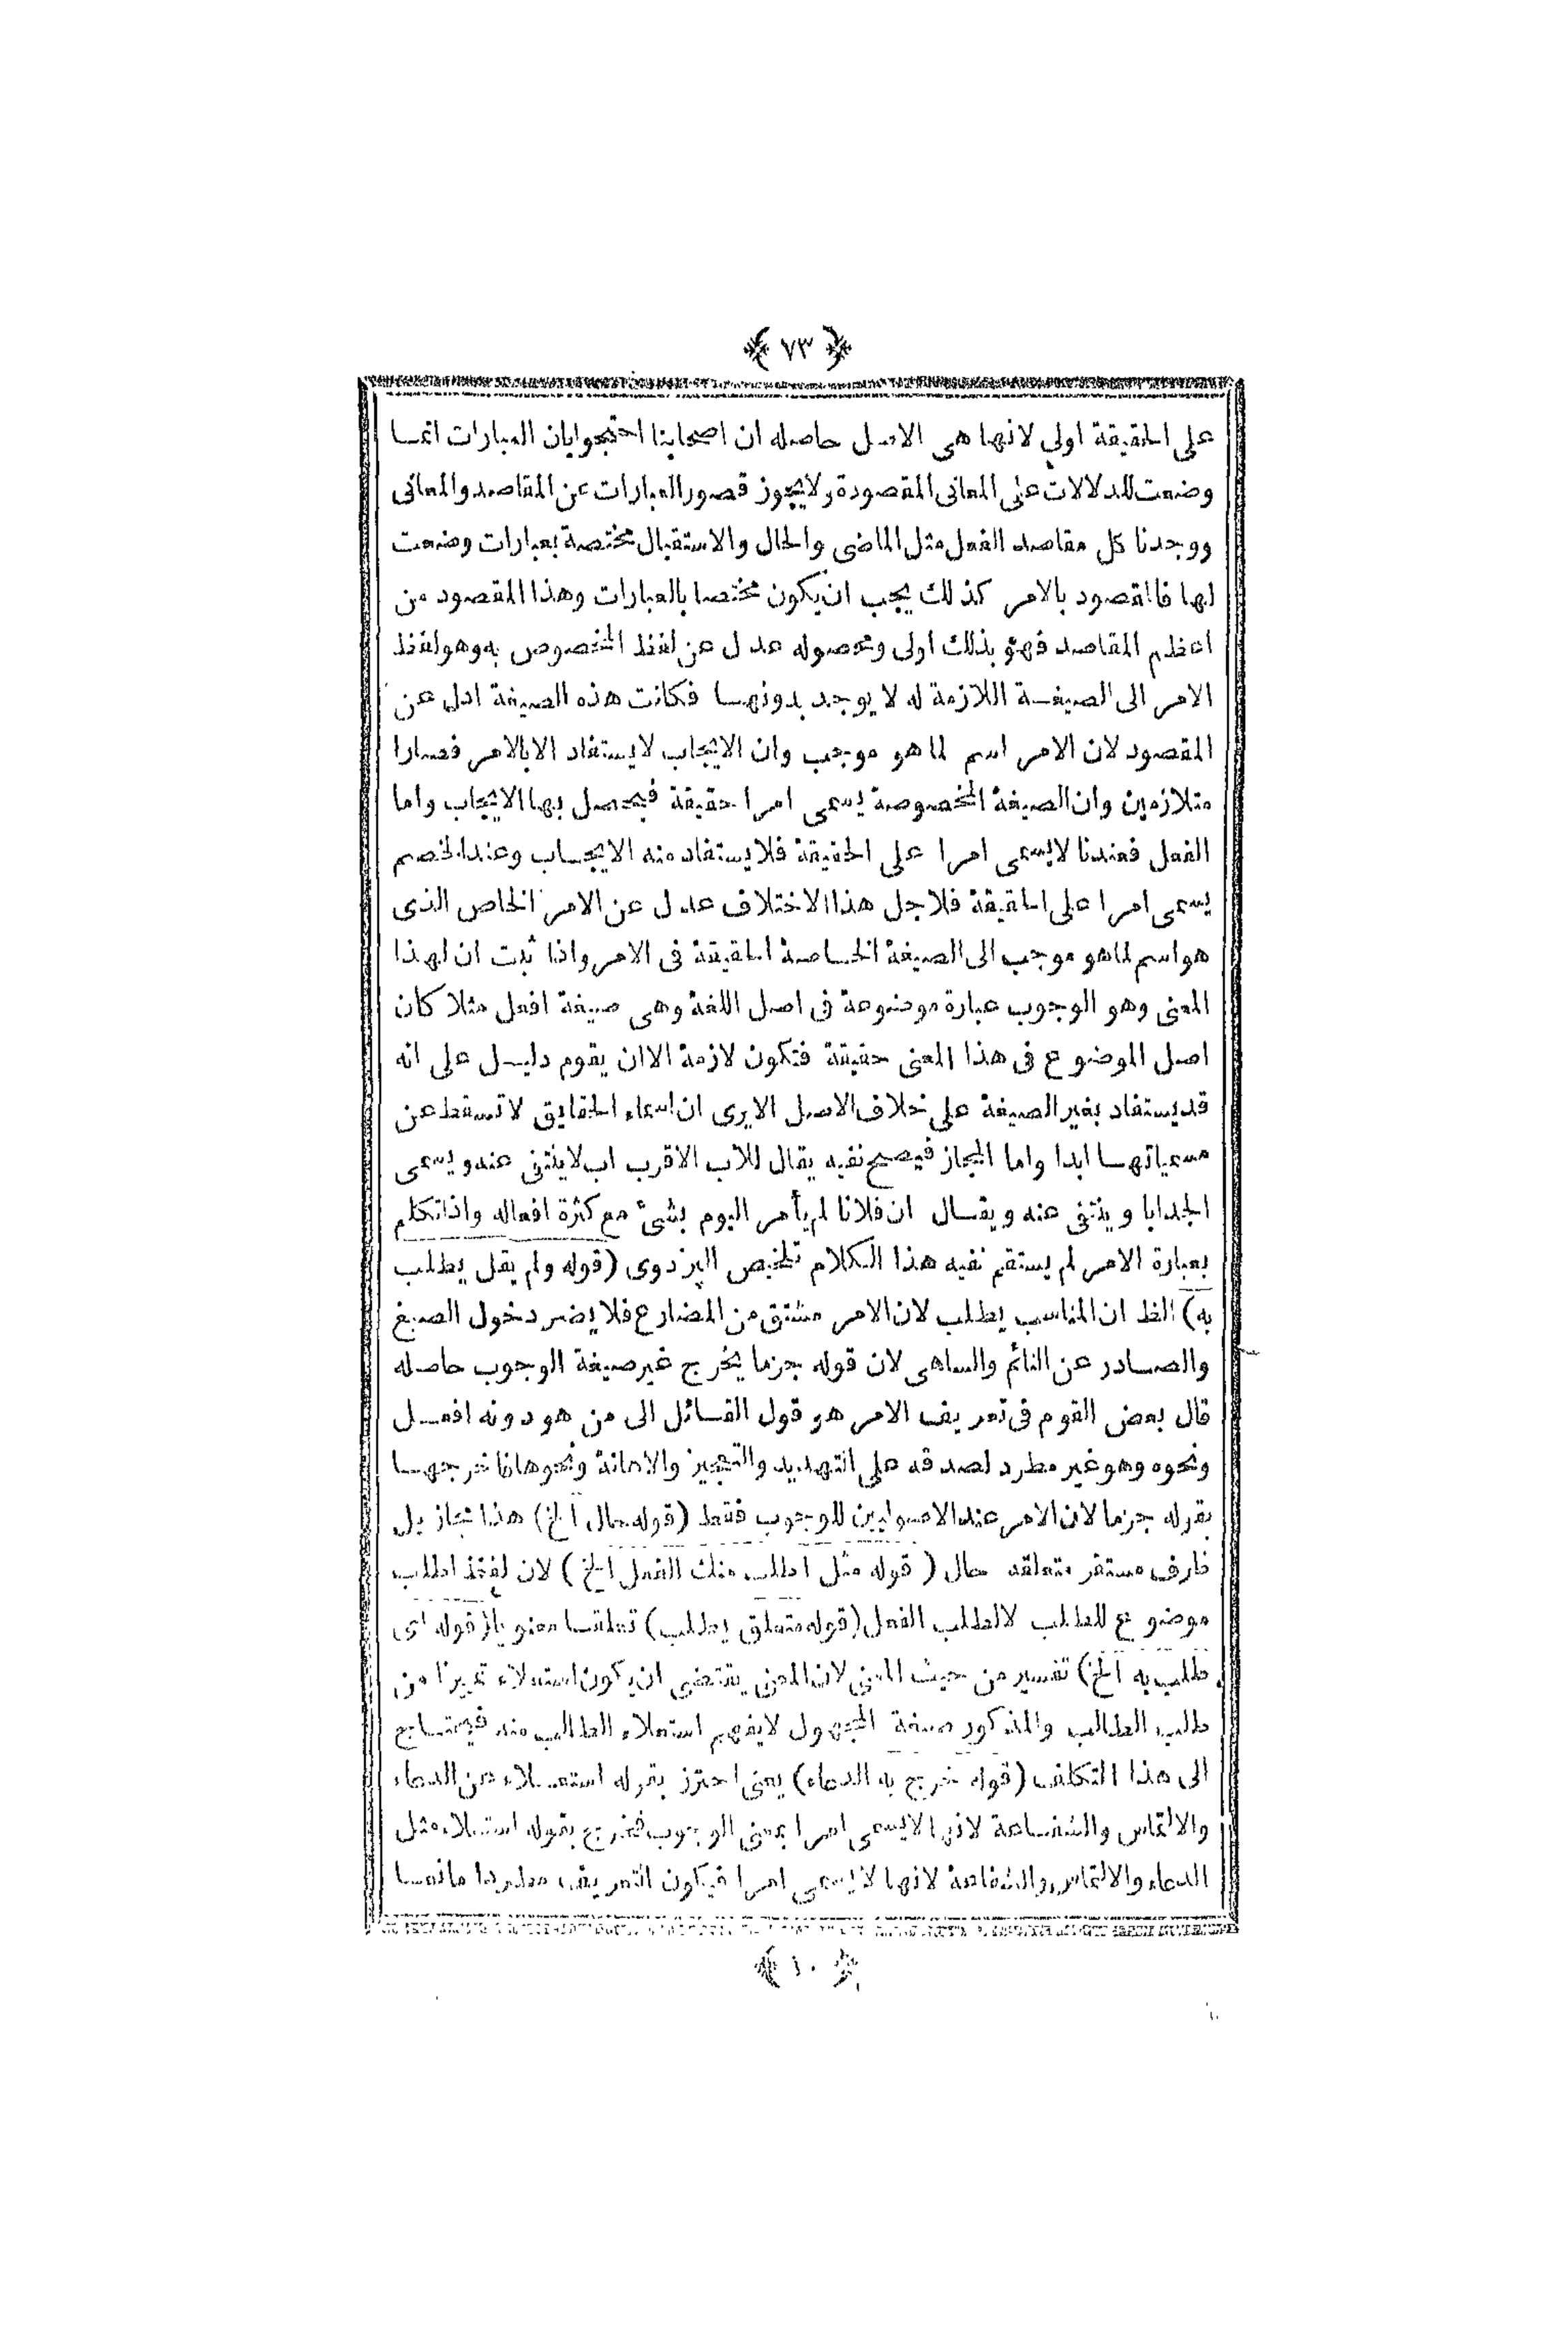 ﴿ ٧٣ ﴾
على الحقيقة اولى لانها هى الاصل حاصله ان اصحابنا احتجوا بان العبارات انما
وضعت للدلالات على المعانى المقصودة ولا يجوز قصور العبارات عن المقاصد والمعانى
ووجدنا كل مقاصد الفعل مثل الماضى والحال والاستقبال مختصة بعبارات وضعت
لها فالمقصود بالامر كذلك يجب ان يكون مختصا بالعبارات وهذا المقصود من
اعظم المقاصد فهو بذلك اولى ومحصوله عدل عن لفظ المخصوص به وهو لفظ
الامر الى الصيغة اللازمة له لا يوجد بدونها فكانت هذه الصيغة ادل عن
المقصود لان الامر اسم لما هو موجب وان الايجاب لا يستفاد الا بالامر فصارا
متلازمين وان الصيغة المخصوصة يسمى امرا حقيقة فيحصل بها الايجاب واما
الفعل فعندنا لا يسمى امرا على الحقيقة فلا يستفاد منه الايجاب وعند الخصم
يسمى امرا على الحقيقة فلاجل هذا الاختلاف عدل عن الامر الخاص الذى
هو اسم لما هو موجب الى الصيغة الخاصة الحقيقة فى الامر واذا ثبت ان لهذا
المعنى وهو الوجوب عبارة موضوعة فى اصل اللغة وهى صيغة افعل مثلا كان
اصل الموضوع فى هذا المعنى حقيقة فتكون لازمة الا ان يقوم دليل على انه
قد يستفاد بغير الصيغة على خلاف الاصل الا يرى ان اسماء الحقايق لا تسقط عن
مسمياتها ابدا واما المجاز فيصح نفيه يقال للاب الاقرب اب لا ينتفى عنه ويسمى
الجد ابا وينتفى عنه ويقال ان فلانا لم يأمر اليوم بشئ مع كثرة افعاله واذا تكلم
بعبارة الامر لم يستقم نفيه هذا الكلام تلخيص البزدوى (قوله ولم يقل يطلب
به) الظ ان المناسب يطلب لان الامر مشتق من المضارع فلا يضر دخول الصيغ
والصادر عن النائم والساهى لان قوله جزما يخرج غير صيغة الوجوب حاصله
قال بعض القوم فى تعريف الامر هو قول القائل الى من هو دونه افعل
ونحوه وهو غير مطرد لصدقه على التهديد والتعجيز والاهانة ونحوها فاخرجها
بقوله جزما لان الامر عند الاصوليين للوجوب فقط (قوله حال الخ) هذا مجاز بل
ظرف مستقر متعلقه حال (قوله مثل اطلب منك الفعل الخ) لان لفظ اطلب
موضوع للطلب لا لطلب الفعل (قوله متعلق يطلب) تعلقا معنويا (قوله اى
طلب به الخ) تفسير من حيث المعنى لان المعنى يقتضى ان يكون استعلاء تمييزا من
طلب الطالب والمذكور صيغة المجهول لا يفهم استعلاء الطالب منه فيحتاج
الى هذا التكلف (قوله خرج به الدعاء) يعنى احترز بقوله استعلاء عن الدعاء
والالتماس والشفاعة لانها لا يسمى امرا بمعنى الوجوب فخرج بقوله استعلاء مثل
الدعاء والالتماس والشفاعة لانها لا يسمى امرا فيكون التعريف مطردا مانعا
﴿ ١٠ ﴾